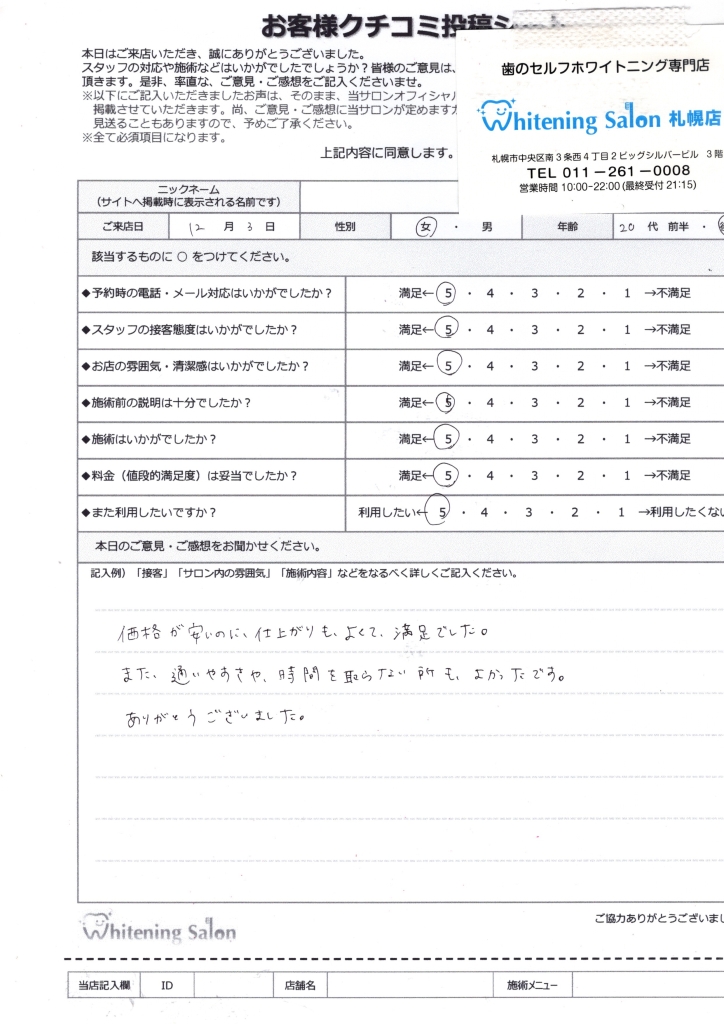 お客様クチコミ投稿シート
本日はご来店いただき、誠にありがとうございました。
スタッフの対応や施術などはいかがでしたでしょうか？皆様のご意見は、
頂きます。是非、率直な、ご意見・ご感想をご記入くださいませ。
※以下にご記入いただきましたお声は、そのまま、当サロンオフィシャル
掲載させていただきます。尚、ご意見・ご感想に当サロンが定めますガ
見送ることもありますので、予めご了承ください。
※全て必須項目になります。
上記内容に同意します。
歯のセルフホワイトニング専門店
Whitening Salon 札幌店
札幌市中央区南3条西4丁目2ビッグシルバービル 3階
TEL 011－261－0008
営業時間 10:00-22:00(最終受付 21:15)
ニックネーム
（サイトへ掲載時に表示される名前です）
ご来店日 12 月 3 日 性別 女 ・ 男 年齢 20 代 前半 ・
該当するものに ○ をつけてください。
◆予約時の電話・メール対応はいかがでしたか？ 満足← 5 ・ 4 ・ 3 ・ 2 ・ 1 →不満足
◆スタッフの接客態度はいかがでしたか？ 満足← 5 ・ 4 ・ 3 ・ 2 ・ 1 →不満足
◆お店の雰囲気・清潔感はいかがでしたか？ 満足← 5 ・ 4 ・ 3 ・ 2 ・ 1 →不満足
◆施術前の説明は十分でしたか？ 満足← 5 ・ 4 ・ 3 ・ 2 ・ 1 →不満足
◆施術はいかがでしたか？ 満足← 5 ・ 4 ・ 3 ・ 2 ・ 1 →不満足
◆料金（値段的満足度）は妥当でしたか？ 満足← 5 ・ 4 ・ 3 ・ 2 ・ 1 →不満足
◆また利用したいですか？ 利用したい← 5 ・ 4 ・ 3 ・ 2 ・ 1 →利用したくない
本日のご意見・ご感想をお聞かせください。
記入例）「接客」「サロン内の雰囲気」「施術内容」などをなるべく詳しくご記入ください。
価格が安いのに、仕上がりも、よくて、満足でした。
また、通いやすさや、時間を取らない所も、よかったです。
ありがとうございました。
Whitening Salon
ご協力ありがとうございまし
当店記入欄 ID 店舗名 施術メニュー